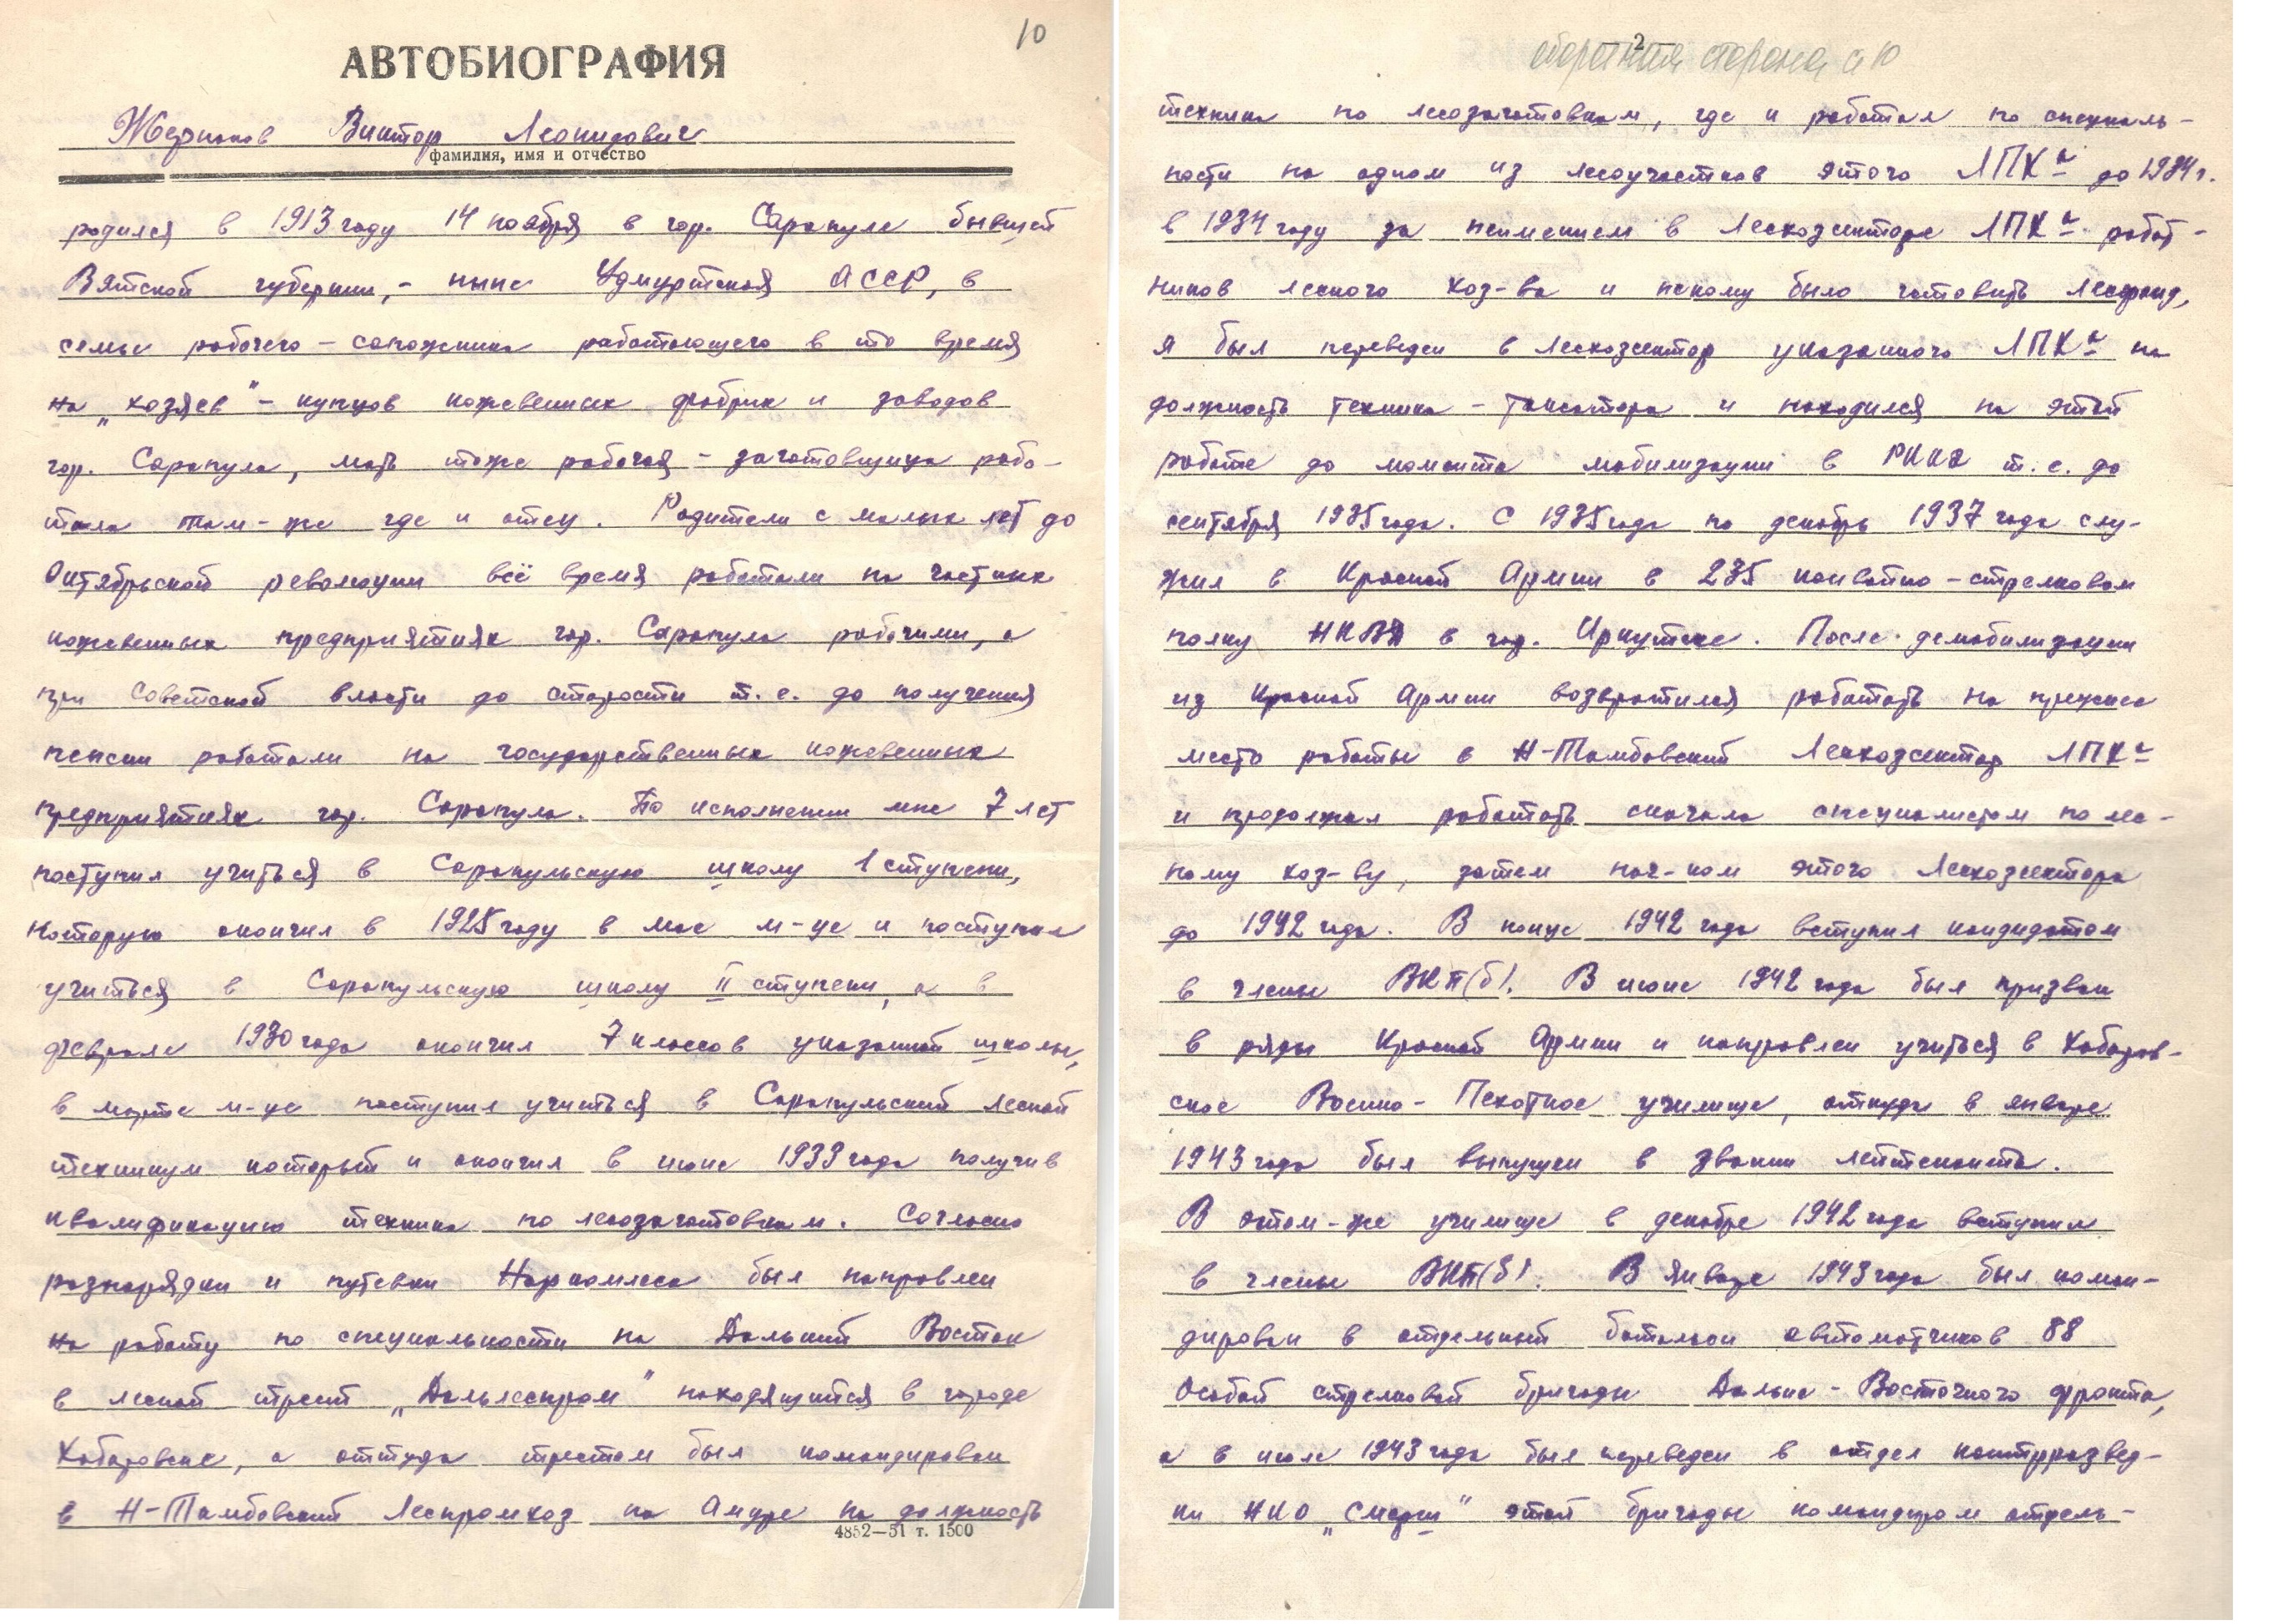 10
АВТОБИОГРАФИЯ
Жерноков Виктор Леонидович
фамилия, имя и отчество
родился в 1913 году 14 ноября в гор. Сарапуле бывшей
Вятской губернии, - ныне Удмуртская АССР, в
семье рабочего - сапожника работающего в то время
на „хозяев" - купцов кожевенных фабрик и заводов
гор. Сарапула, мать тоже рабочая - заготовщица рабо-
тала там-же где и отец. Родители с малых лет до
Октябрьской революции всё время работали на частных
кожевенных предприятиях гор. Сарапула рабочими, а
при Советской власти до старости т. е. до получения
пенсии работали на государственных кожевенных
предприятиях гор. Сарапула. По исполнении мне 7 лет
поступил учиться в Сарапульскую школу 1 ступени,
которую окончил в 1925 году в мае м-це и поступил
учиться в Сарапульскую школу II ступени, а в
феврале 1930 года окончил 7 классов указанной школы,
в марте м-це поступил учиться в Сарапульский лесной
техникум который и окончил в июне 1933 года получив
квалификацию техника по лесозаготовкам. Согласно
разнарядки и путевки Наркомлеса был направлен
на работу по специальности на Дальний Восток
в лесной трест „Дальлеспром" находящийся в городе
Хабаровске, а оттуда трестом был командирован
в Н-Тамбовский Леспромхоз на Амуре на должность
4852—51 т. 1500
2
оборотная сторона л 10
техника по лесозаготовкам, где и работал по специаль-
ности на одном из лесоучастков этого ЛПХа до 1934 г.
в 1934 году за неимением в Лесхозсекторе ЛПХа работ-
ников лесного хоз-ва и некому было готовить лесфонд,
я был переведен в Лесхозсектор указанного ЛПХа на
должность техника - таксатора и находился на этой
работе до момента мобилизации в РККА т. е. до
сентября 1935 года. С 1935 года по декабрь 1937 года слу-
жил в Красной Армии в 235 конвойно - стрелковом
полку НКВД в гор. Иркутске. После демобилизации
из Красной Армии возвратился работать на прежнее
место работы в Н-Тамбовский Лесхозсектор ЛПХа
и продолжал работать сначала специалистом по лес-
ному хоз-ву, затем нач-ком этого Лесхозсектора
до 1942 года. В конце 1942 года вступил кандидатом
в члены ВКП(б). В июне 1942 года был призван
в ряды Красной Армии и направлен учиться в Хабаров-
ское Военно - Пехотное училище, откуда в январе
1943 года был выпущен в звании лейтенанта.
В этом-же училище в декабре 1942 года вступил
в члены ВКП(б). В январе 1943 года был коман-
дирован в отдельный батальон автоматчиков 88
Особой стрелковой бригады Дальне - Восточного фронта,
а в июле 1943 года был переведен в отдел контрразвед-
ки НКО „Смерш" этой бригады командиром отдель-